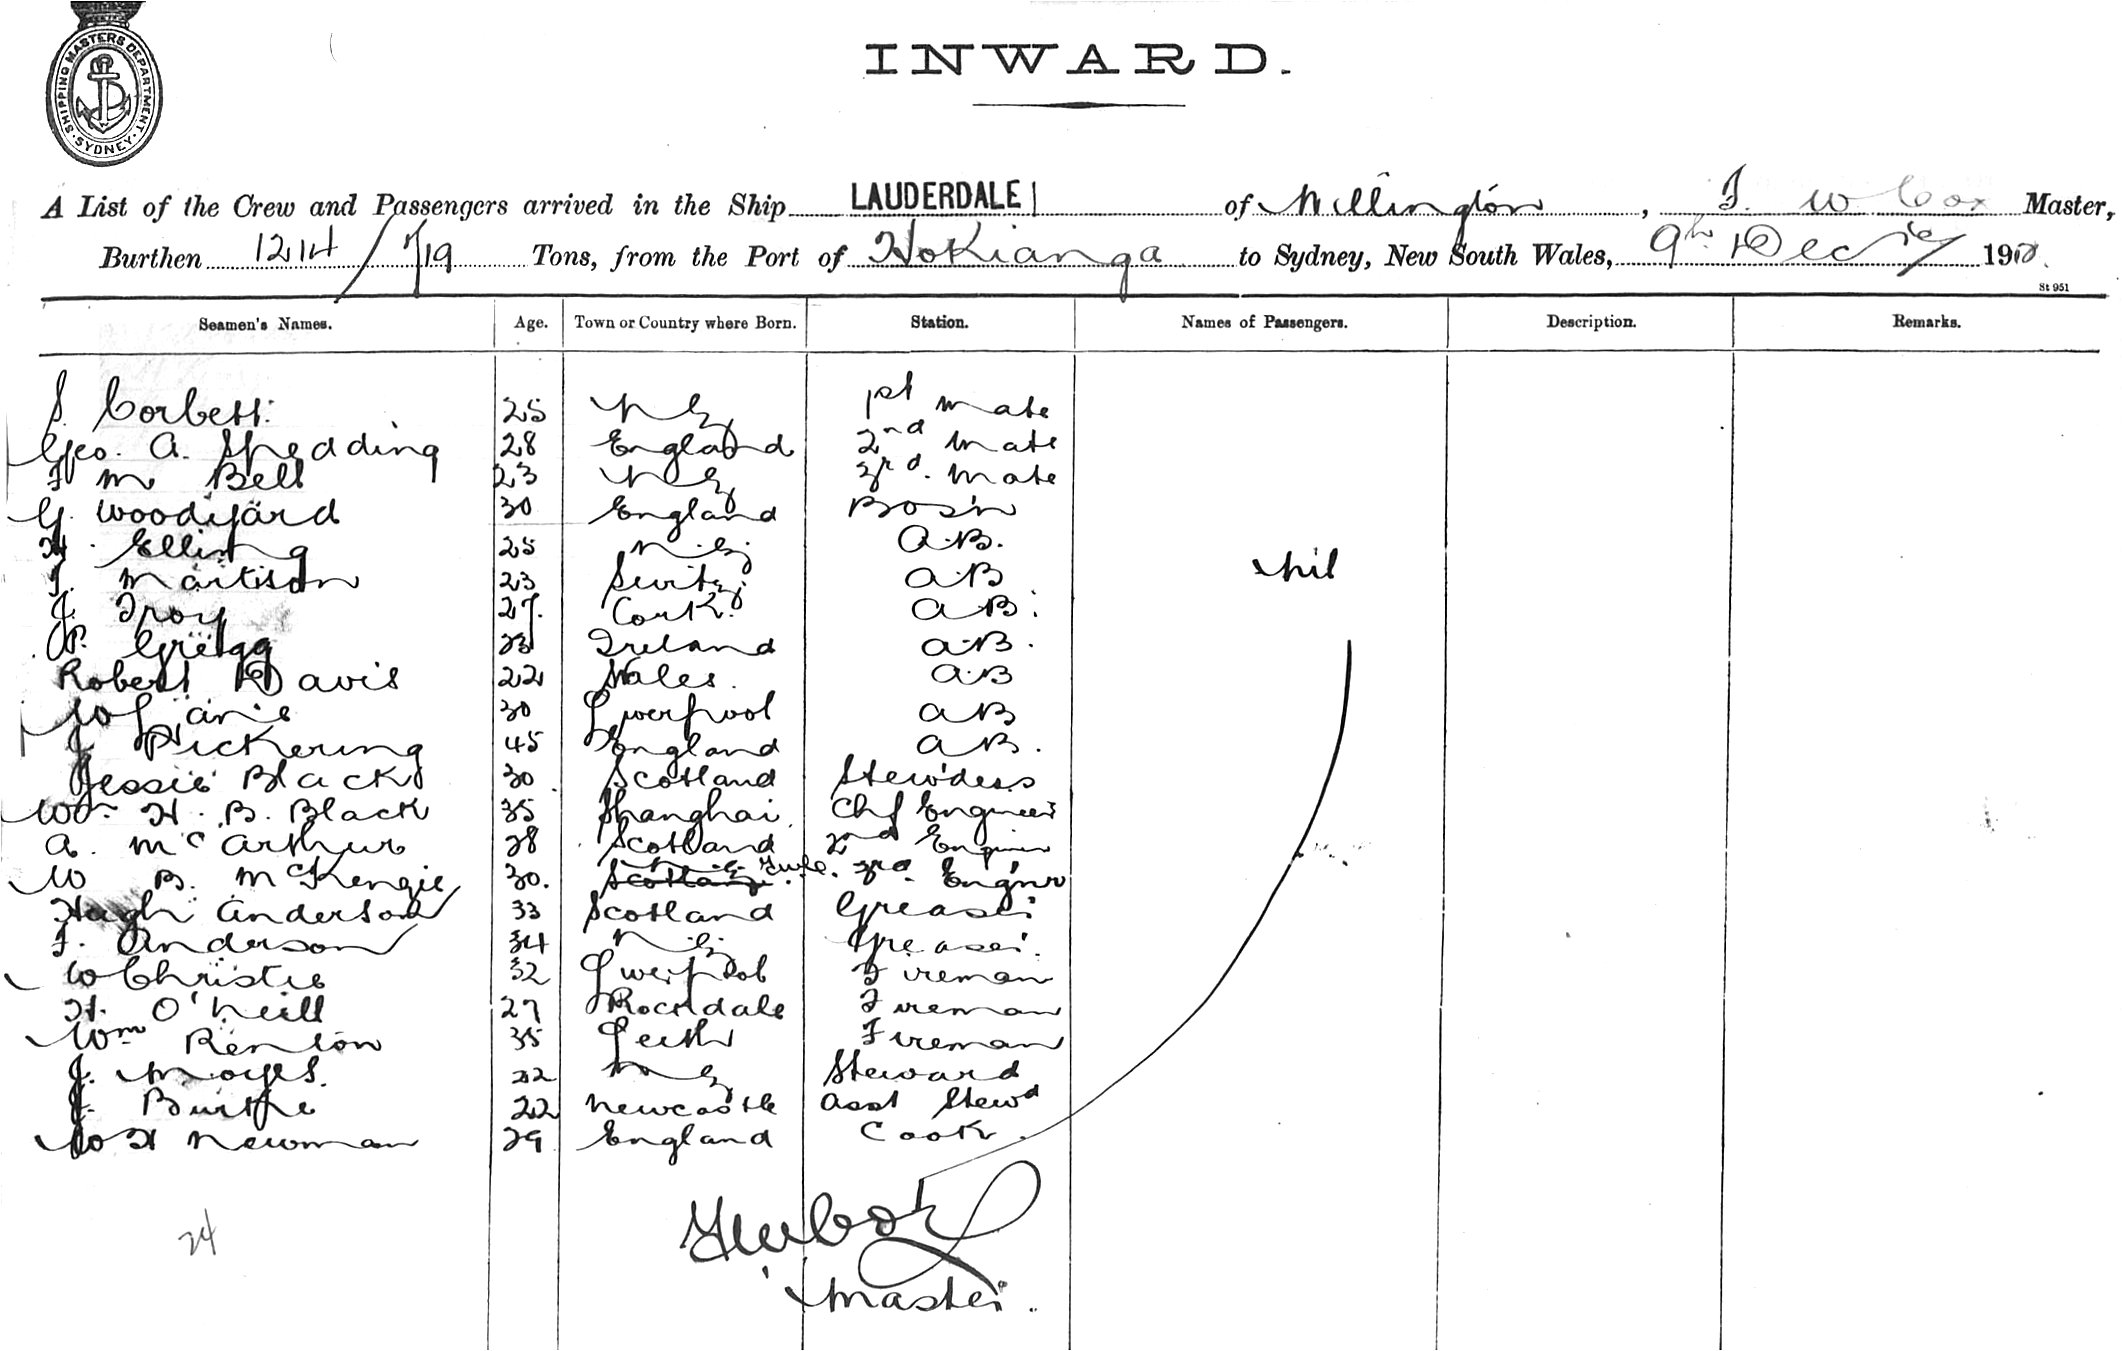 SHIPPING MASTERS DEPARTMENT
SYDNEY
INWARD.
A List of the Crew and Passengers arrived in the Ship LAUDERDALE of Wellington, F. W Cox Master,
Burthen 1214 / Tons, from the Port of Hokianga to Sydney, New South Wales, 9th Dec 19
St 951
Seamen's Names. Age. Town or Country where Born. Station. Names of Passengers. Description. Remarks.
S. Corbett. 25 N Z 1st Mate
Geo. A. Spedding 28 England 2nd Mate
F M Bell 23 N Z 3rd. Mate
G. Woodyard 30 England Bos'n
H. Elling 25 N.Z. A.B.
nil
T. Martison 23 Switz. A.B
J. Troy 27. Cork. A.B.
P. Gregg 23 Ireland A.B.
Robert Davis 22 Wales. A.B
W 30 Liverpool A B
J Pickering 45 England A B.
Jessie Black 30 Scotland Stew'dess
Wm H. B. Black 35 Shanghai Chf Engineer
A. McArthur 28 Scotland 2nd Engineer
W B. McKenzie 30. Scotland 3rd. Engner
Hugh Anderson 33 Scotland Greaser
F. Anderson 34 N.Z. Greaser.
W Christie 32 Liverpool Fireman
H. O'Neill 27 Rochdale Fireman
Wm Renton 35 Leith Fireman
J. Moyes. 22 N Z Steward
J. Burthe 22 Newcastle Asst Stewd
W H Newman 29 England Cook.
24
Master.